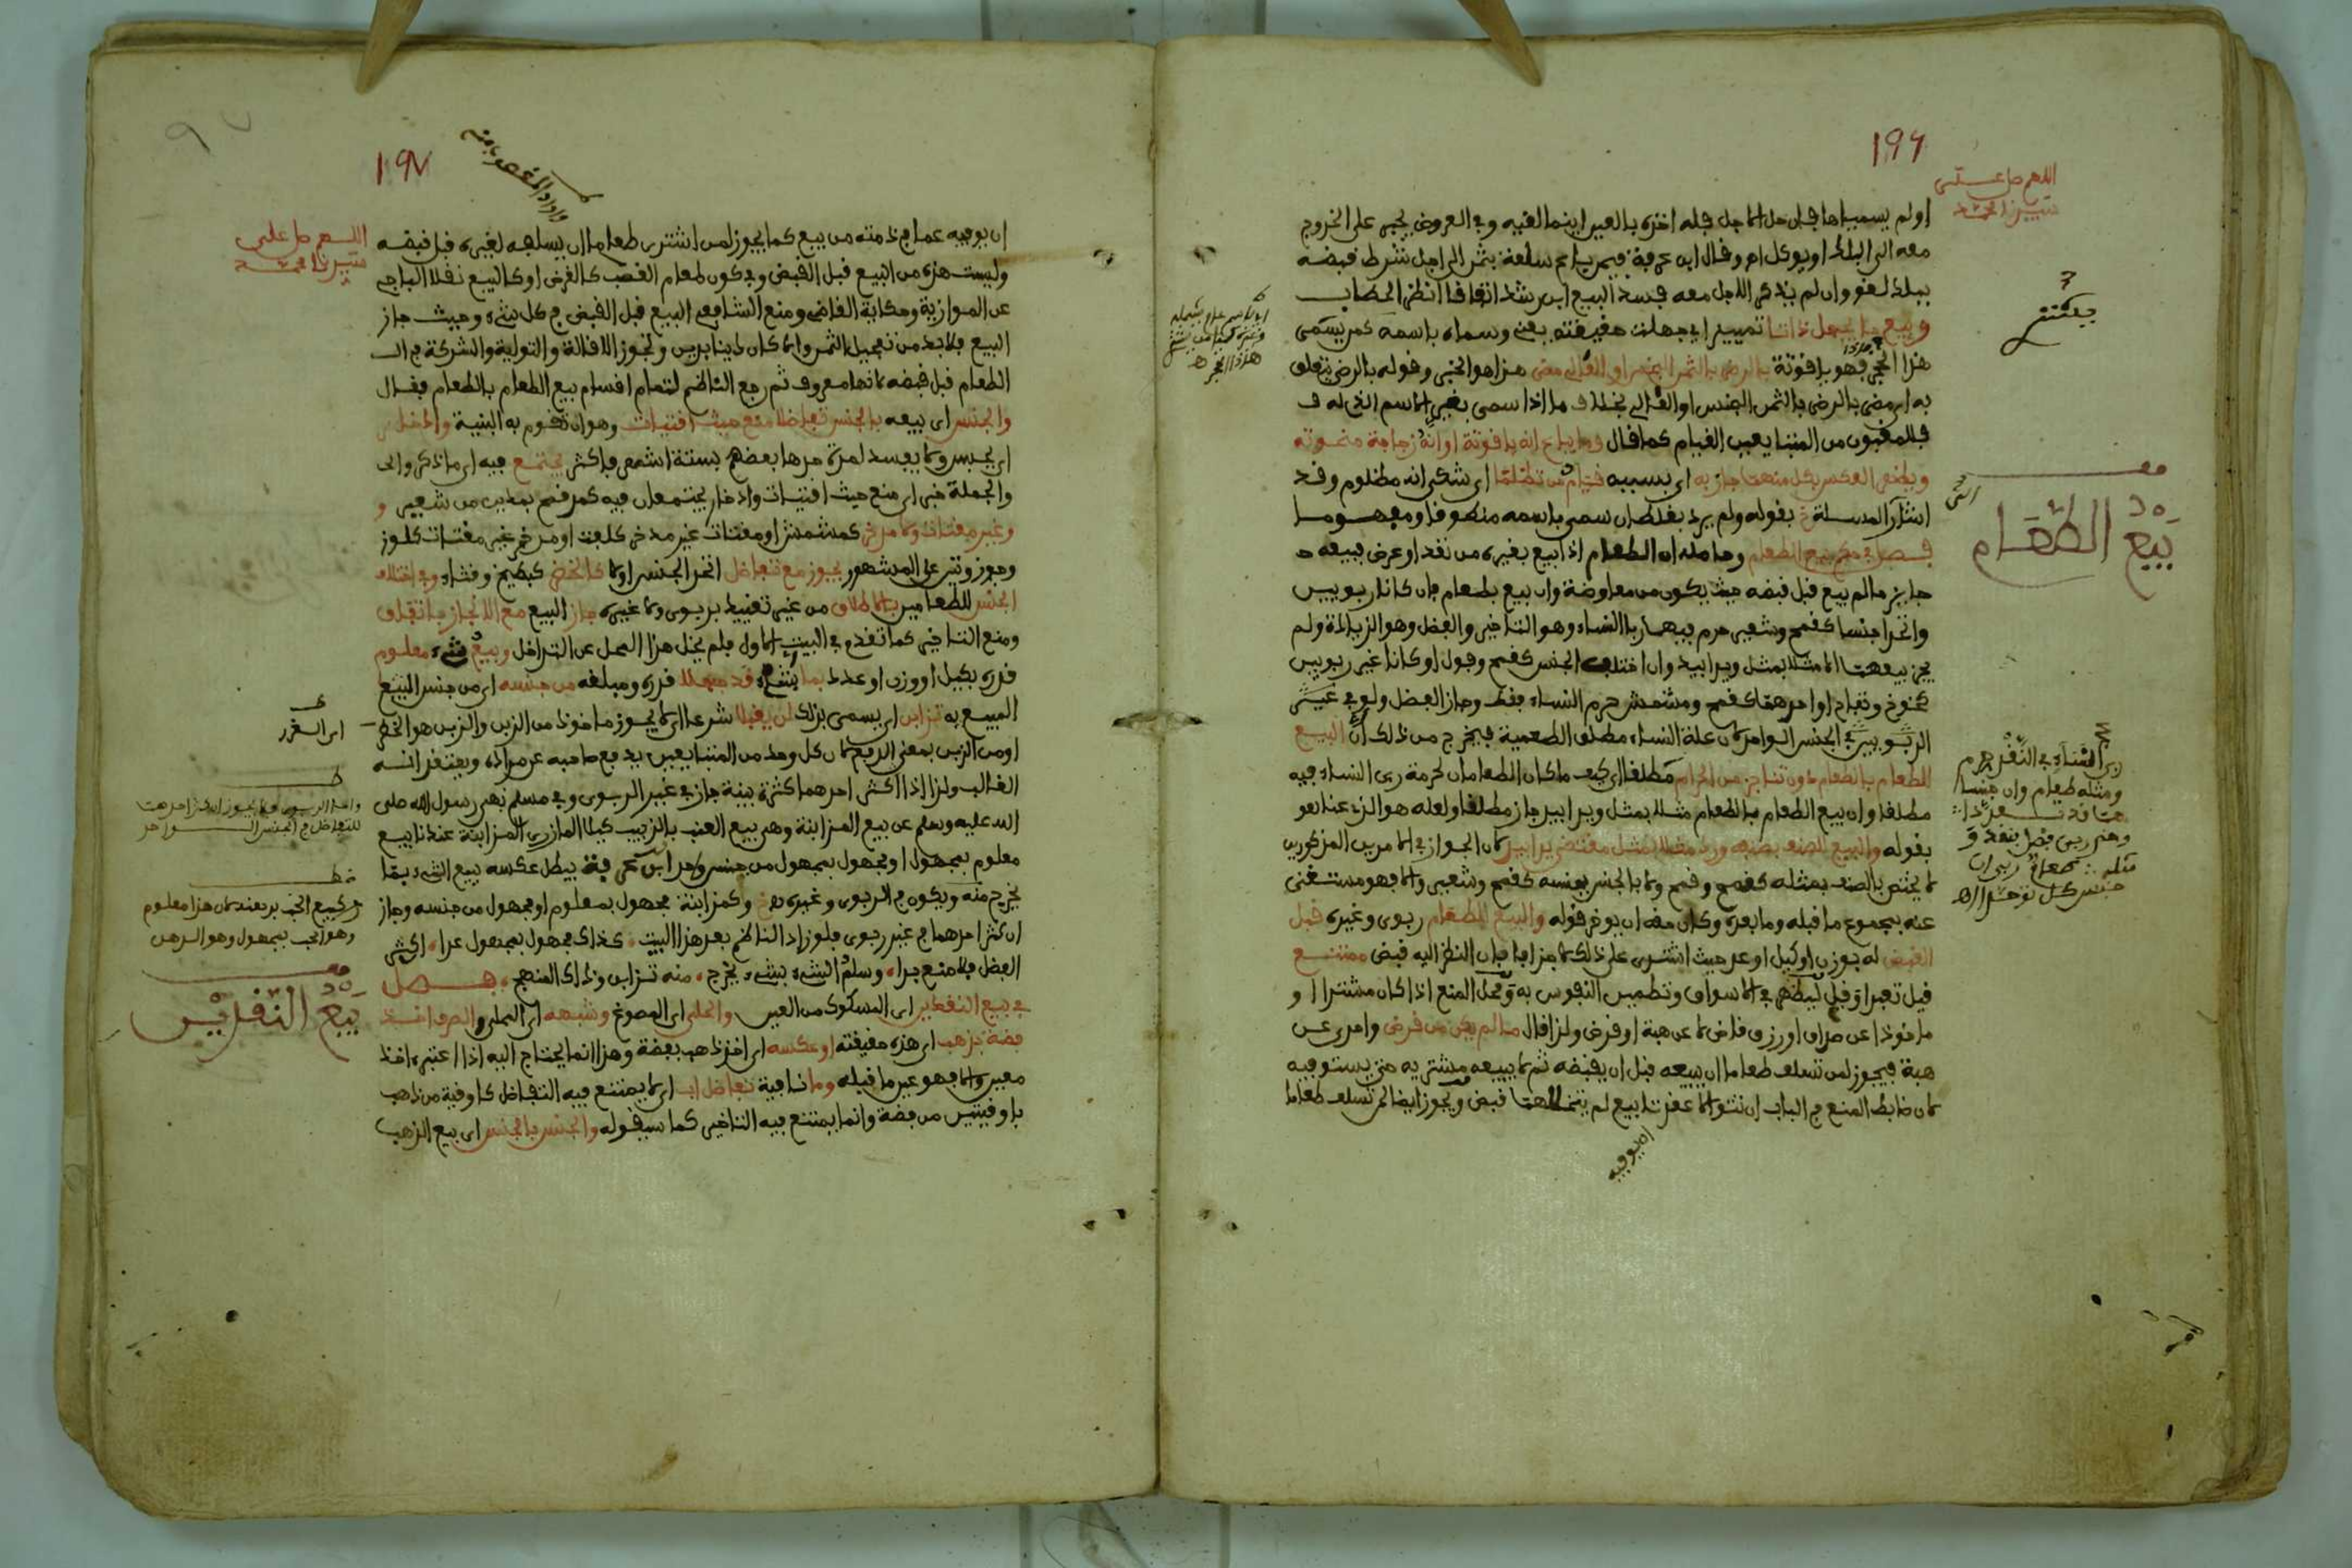 ١٩٦
اللهم صل على
سيدنا محمد
اولم يسمياها فان حل الاجل فله اخذه بالعين اينما لفيه وفي العروض يجبر على الخروج
معه الى البلد او يوكل اه وقال ابن عرفة فيمن باع سلعة بثمن الى اجل شرط قبضه
ببلد لغو وان لم يذكر الاجل معه فسد البيع ابن رشد اتفاقا انظر الحطاب
وبيع ما يجهل ذاتا تمييزا اي جهلت حقيقته يعني وسماه باسمه كمن يسمى
هذا الحجر فهو ياقوتة بالرضى بالثمن البخس او الغالي مضى هذا هو الخبر وقوله بالرضى يتعلق
به اي مضى بالرضى بالثمن البخس او الغالي بخلاف ما اذا سمى بغير الاسم الذي له ف
فللمغبون من المتبايعين القيام كما قال وما يباع انه ياقوتة او انه زجاجة منحوتة
ويظهر العكس بكل منهما جاز به اي بسببه قيام من تظلما اي شكى انه مظلوم وقد
اشار المسئلة خ بقوله ولم يرد بغلط ان سمى باسمه منطوقا ومفهوما
بيع الطعام
فصل في حكم بيع الطعام وحاصله ان الطعام اذا بيع بغيره من نقد او عرض فبيعه
جايز ما لم يبع قبل قبضه حيث يكون من معاوضة وان بيع بطعام فان كانا ربويين
واتحدا جنسا كقمح وشعير حرم فيهما ربا النساء وهو التاخير والفضل وهو الزيادة ولم
يجز بيعهما الا مثلا بمثل ويدا بيد وان اختلف الجنس كقمح وفول او كانا غير ربويين
كخوخ وتفاح او احدهما كقمح ومشمش حرم النساء فقط وجاز الفضل ولو في غير
الربويين في الجنس الواحد لان علة النساء مطلق الطعمية فيخرج من ذلك ان البيع
للطعام بالطعام دون تناجز من الحرام مطلقا اي كيف ما كان الطعامان لحرمة ربى النساء فيه
مطلقا وان بيع الطعام بالطعام مثلا بمثل ويدا بيد جاز مطلقا ولعله هو الذي عنا
بقوله والبيع للصنف بصنفه ورد مثلا بمثل مقتضى يدا بيد لان الجواز في الامرين المذكورين
لا يختص بالصنف بمثله كقمح وقمح ولا بالجنس بجنسه كقمح وشعير والا فهو مستغنى
عنه بمجموع ما قبله وما بعده وكان حقه ان يوخر قوله والبيع للطعام ربوى وغيره قبل
القبض له بوزن او كيل او عد حيث اشترى على ذلك لا جزافا فان النظر اليه قبض ممتنع
قيل تعبدا وقيل ليظهر في الاسواق وتطمئن النفوس به ومحل المنع اذا كان مشترا او
ماخوذا عن صداق او رزق قاض لا عن هبة او قرض ولذا قال ما لم يكن من قرض وامرى عن
هبة فيجوز لمن تسلف طعاما ان يبيعه قبل ان يقبضه ثم لا يبيعه مشتريه حتى يستوفيه
لان ضابط المنع في الباب ان تتوالا عقدتا بيع لم يتخللهما قبض ويجوز ايضا لمن تسلف طعاما
ان يوفيه
ربى النساء في النقد حرم
ومثله طعام وان جنساهما
قد تعددا
وخص ربى فضل بنقد و
مثله طعام ربى ان
جنس كل توحدا اه
١٩٧
اللهم صل على
سيدنا محمد
ان يوفيه عما في ذمته من بيع كما يجوز لمن اشترى طعاما ان يسلفه لغيره قبل قبضه
وليست هذه من البيع قبل القبض وفي كون طعام الغصب كالقرض او كالبيع نقلا الباجي
عن الموازية وحكاية القاضي ومنع الشافعي البيع قبل القبض في كل شيء وحيث جاز
البيع فلا بد من تعجيل الثمن والا كان دينا بدين وتجوز الاقالة والتولية والشركة في
الطعام قبل قبضه لانها معروف ثم رجع الناظم لتمام اقسام بيع الطعام بالطعام فقال
والجنس اي بيعه بالجنس تفاضلا منع حيث اقتيات وهو ان تقوم به البنية وادخار
اي بحبس ولا يفسد لمدة حدها بعضهم بستة اشهر فاكثر يجتمع فيه اي ما ذكر والى
والجملة خبر اي منع حيث اقتيات وادخار يجتمعان فيه كمد قمح بمدين من شعير و
وغير مقتات ولا مدخر كمشمش او مقتات غير مدخر كلفت او مدخر غير مقتات كلوز
وجوز وتين على المشهور يجوز مع تفاضل اتحد الجنس او لا كالخضر كبطيخ وقثاء وفي اختلاف
الجنس للطعامين بالاطلاق من غير تقييد بربوى ولا غيره جاز البيع مع الانجاز باتفاق
ومنع التاخير كما تقدم في البيت الاول فلم يخل هذا المحل عن التداخل وبيع شيء معلوم
قدره بكيل او وزن او عدد بما اي شيء قد جهلا قدره ومبلغه من جنسه اي من جنس المبيع
المبيع به تزابن اي يسمى بذلك لن يقبلا شرعا اي لا يجوز ماخوذ من الزبن والزبن هو الخطر
او من الزبن بمعنى الدفع لان كل واحد من المتبايعين يدفع صاحبه عن مراده ويعتقد انه
الغالب ولذا اذا كثر احدهما كثرة بينة جاز في غير الربوى وفي مسلم نهى رسول الله صلى
الله عليه وسلم عن بيع المزابنة وهي بيع العنب بالزبيب كيلا المازري المزابنة عندنا بيع
معلوم بمجهول او مجهول بمجهول من جنس واحد ابن عرفة يبطل عكسه بيع الشيء بما
يخرج منه ويكون في الربوى وغيره خ وكمزابنة مجهول بمعلوم او مجهول من جنسه وجاز
ان كثر احدهما في غير ربوى فلو زاد الناظم بعد هذا البيت كذاك مجهول بمجهول عدا اكثر
الفضل فلا منع بدا وسلم الشيء بشيء يخرج منه تزابن وذاك المنهج فصل
بيع النقدين
في بيع النقدين اي المسكوك من العين والحلي اي المصوغ وشبهه اي المحلى الصرف اخذ
فضة بذهب اي هذه حقيقته او عكسه اي اخذ ذهب بفضة وهذا انما يحتاج اليه اذا اعتبر اخذ
معين والا فهو عين ما قبله وما فيه تفاضل ابي اي لا يمتنع فيه التفاضل كاوقية من ذهب
باوقيتين من فضة وانما يمتنع فيه التاخير كما سيقوله والجنس بالجنس اي بيع الذهب
اي الغرر
كبيع الحب بدهنه لان هذا معلوم
وهو الحب بمجهول وهو الدهن